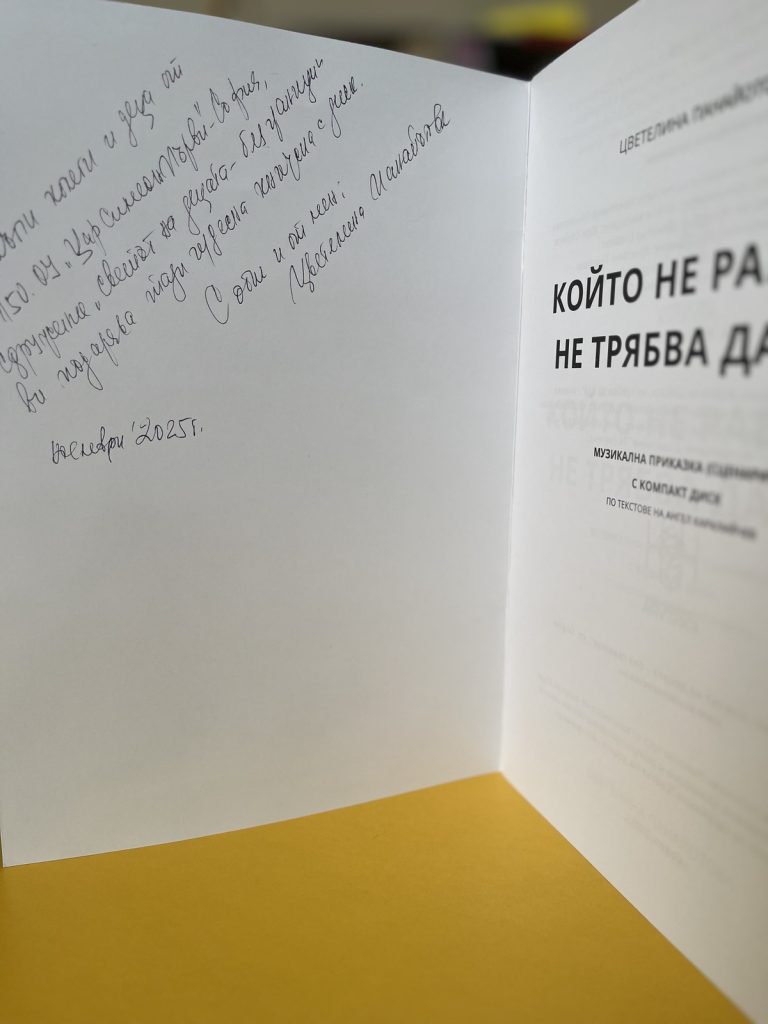 колеги и деца от
150. ОУ „Цар Симеон Първи“ - София,
сдружение „Светът на децата - без граници“
ви подарява тази чудесна книжка с диск.
С обич и от мен:
Цветелина
Ноември '2025г.
ЦВЕТЕЛИНА
КОЙТО НЕ РА
НЕ ТРЯБВА ДА
МУЗИКАЛНА ПРИКАЗКА
С КОМПАКТ ДИСК
ПО ТЕКСТОВЕ НА АНГЕЛ КАРАЛИЙЧЕВ